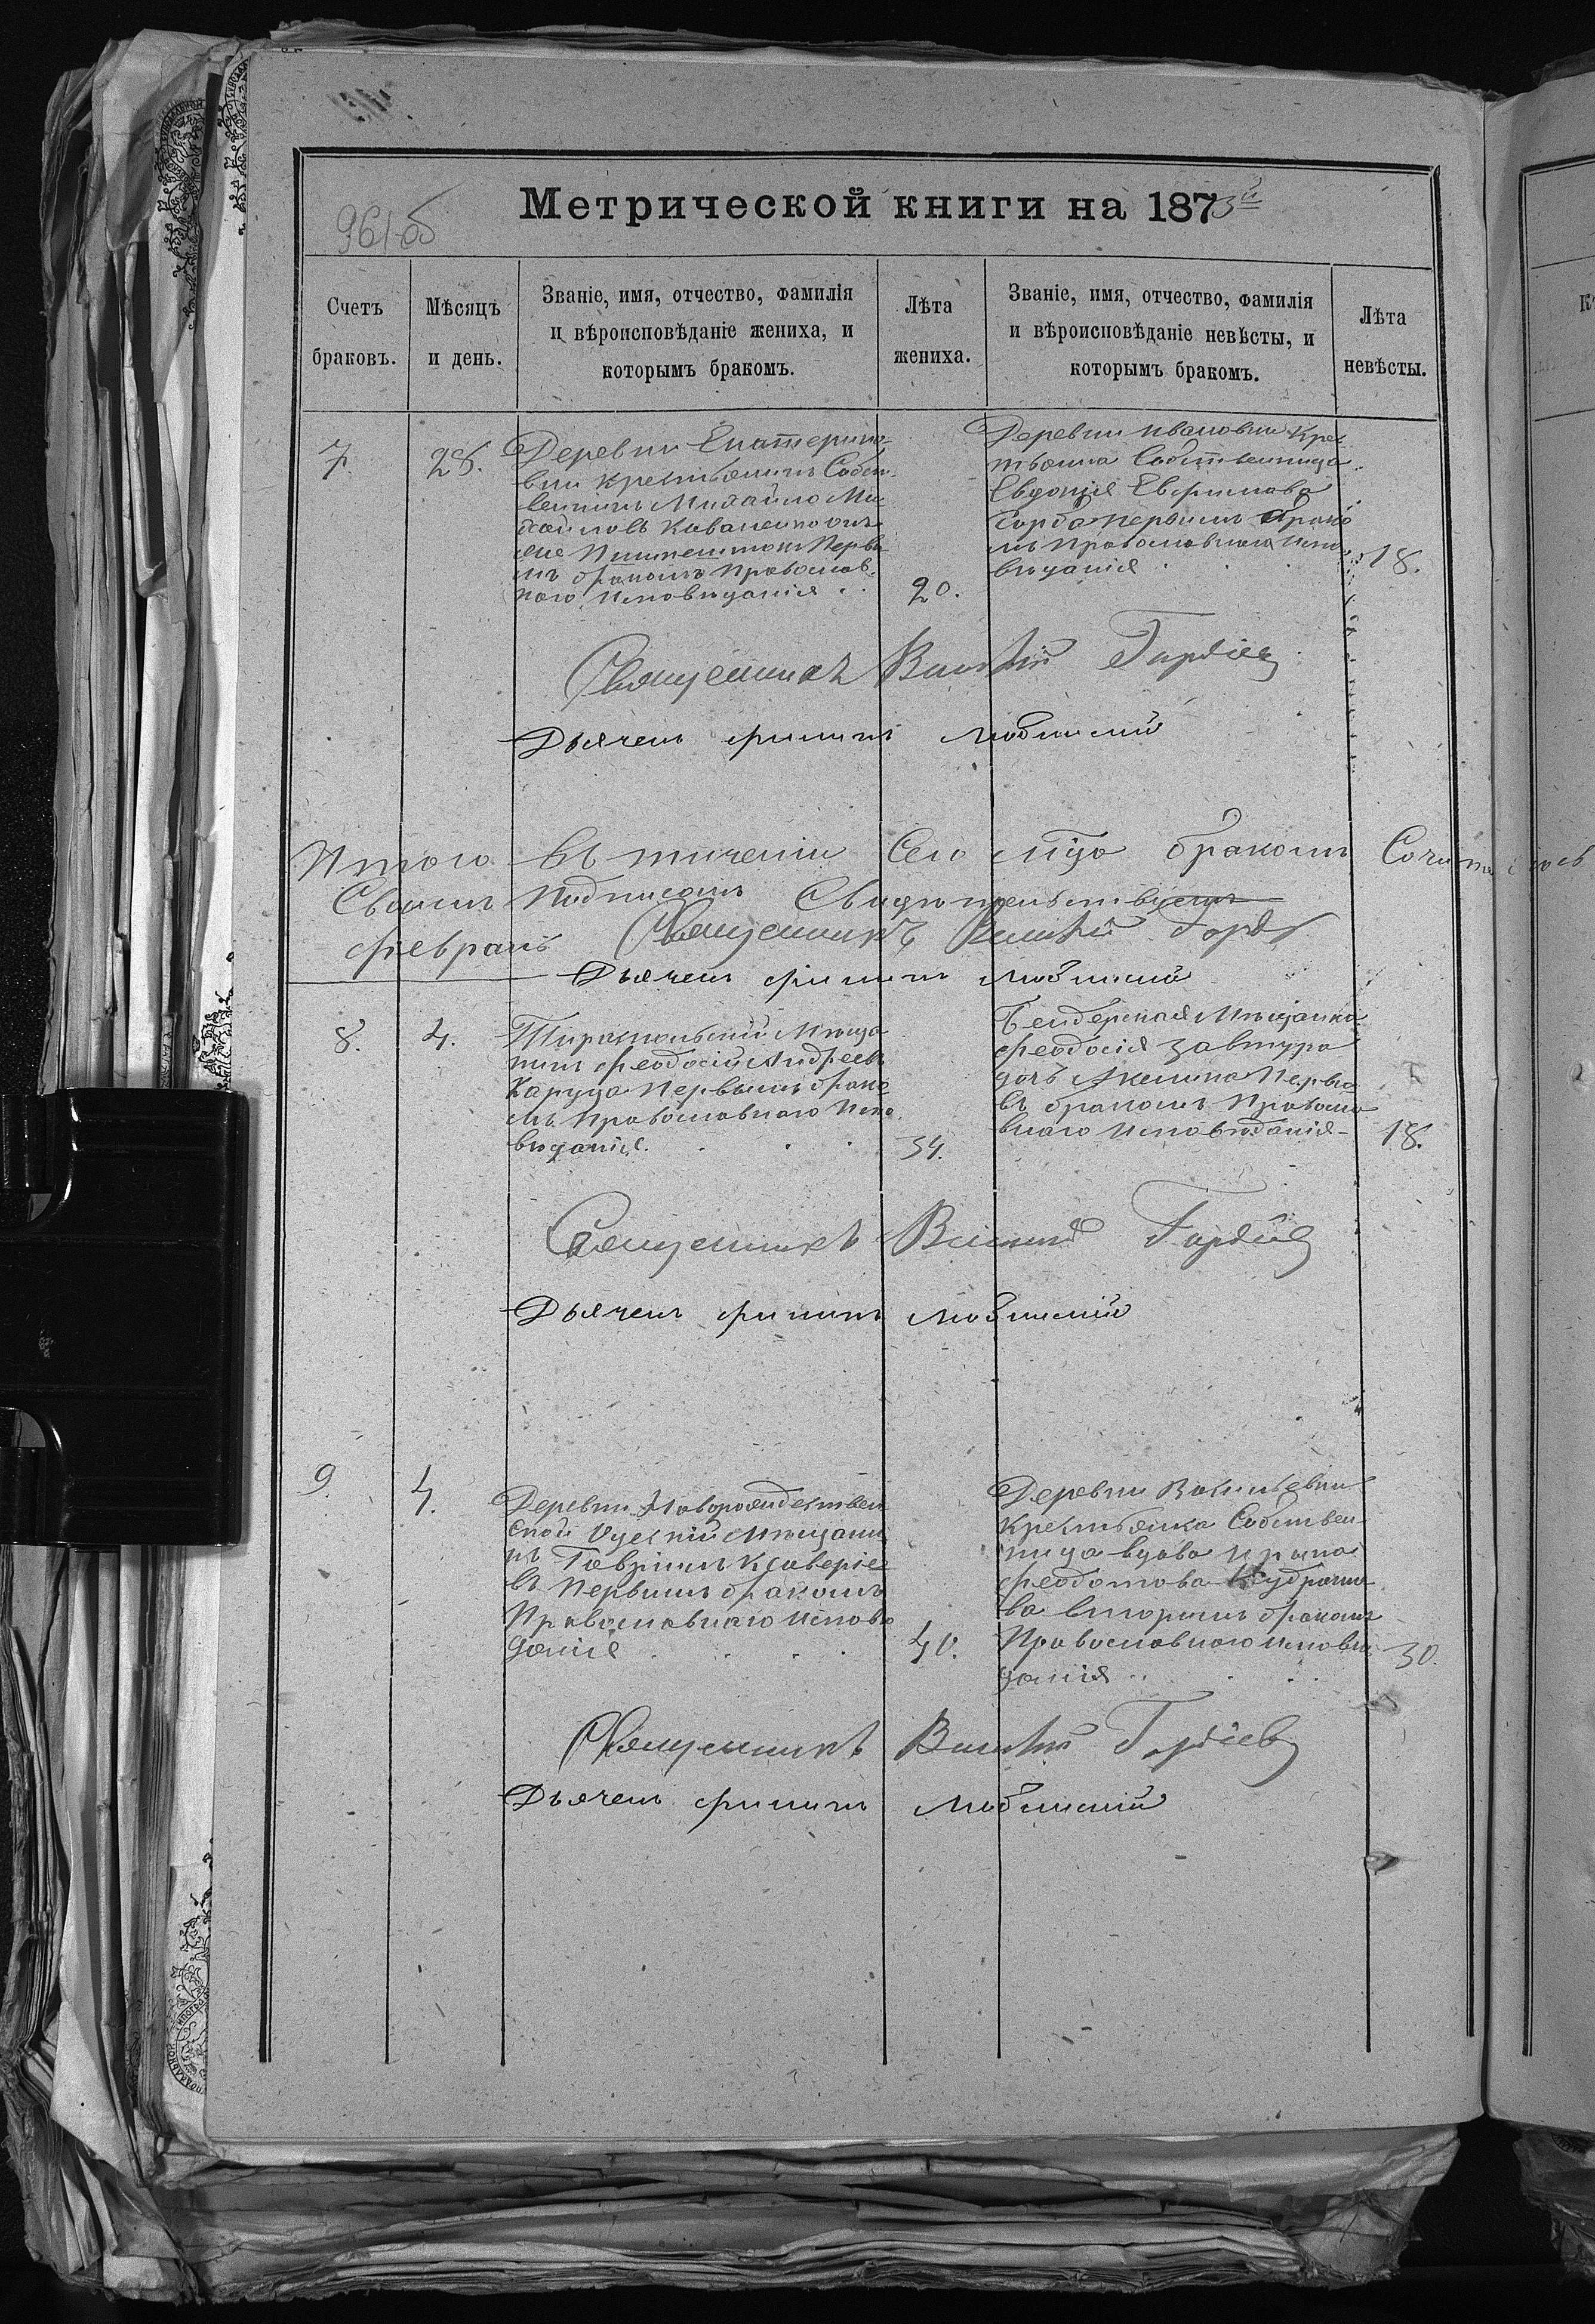 Метрической книги на 1873й
961об
Счетъ
браковъ.
Мѣсяцъ
и день.
Званіе, имя, отчество, фамилія
и вѣроисповѣданіе жениха, и
которымъ бракомъ.
Лѣта
жениха.
Званіе, имя, отчество, фамилія
и вѣроисповѣданіе невѣсты, и
которымъ бракомъ.
Лѣта
невѣсты.
7.
28.
Деревни Екатерино-
вки крестьянинъ Собст-
венникъ Михаило Ми
хаиловъ Коваленко
Первы
мъ бракомъ Православ-
наго Исповѣданія
20.
Деревни Ивановки Крес
тьянка Собственница
Евдокія Ефимова
Горба первымъ брако
мъ Православнаго Испо
вѣданія
18.
Священникъ Гордіевъ
Дьячекъ Филипъ Любинскій
Итого въ теченіи Сего мца бракомъ
Своимъ подписомъ Свидѣтельствуемъ
Священникъ
Февраль
Дьячекъ Филипъ Любинскій
8.
4.
Тираспольскій Мѣща
нинъ Феодосій Андреевъ
Каруца Первымъ брако
мъ Православнаго Испо
вѣданія.
34.
Бендерская Мѣщанка
Феодосія Завтура
дочь Акелина Первы
бракомъ Правосла
внаго Исповѣданія
18.
Священникъ Гордіевъ
Дьячекъ Филипъ Любинскій
9.
4.
Деревни Новорождествен
ской Мѣщани
нъ Гаврiилъ Ксаверіе
въ Первымъ бракомъ
Православнаго Исповѣ
данія
40.
Деревни Васильевки
Крестьянка Собствен
ница вдова Ирина
Феодотова Кудрячо
ва вторымъ бракомъ
Православнаго исповѣ
данія
30.
Священникъ Гордіевъ
Дьячекъ Филипъ Любинскій